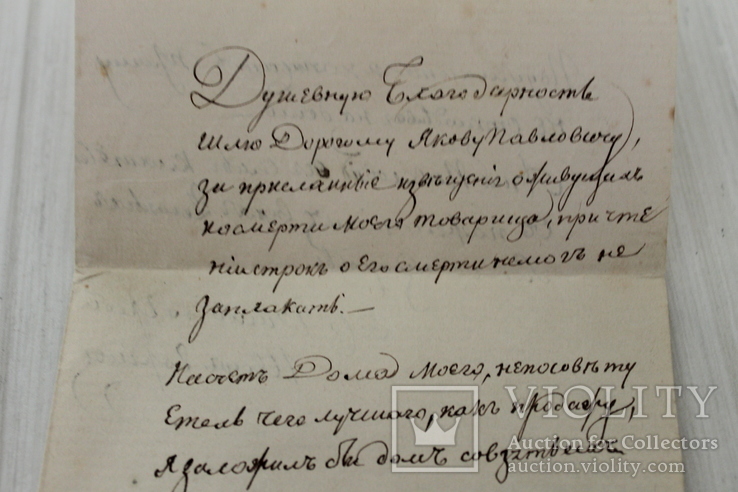 Душевную Благодарность
шлю Дорогому Якову Павловичу,
за присланные известіи о живущихъ
и о смерти моего товарища, при чте
ніи строкъ о Его смерти немогъ не
заплакать. —
Насчетъ Дома моего, непосовѣту
Ете ль чего лучшаго, какъ продажу,
я заложилъ бы домъ
VIOLITY
Auction for Collectors
auction.violity.com